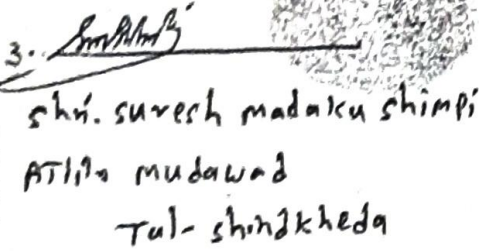 3.
Shri. Suresh madaku shimpi
mudawad
Tal- shindkheda